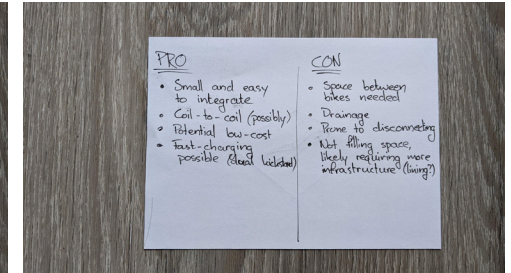 PRO
• Small and easy
to integrate
• Coil-to-coil (possibly)
• Potential low-cost
• Fast-charging
possible (dual kickstand)
CON
• Space between
bikes needed
• Drainage
• Prone to disconnecting
• Not filling space,
likely requiring more
infrastructure (lining?)